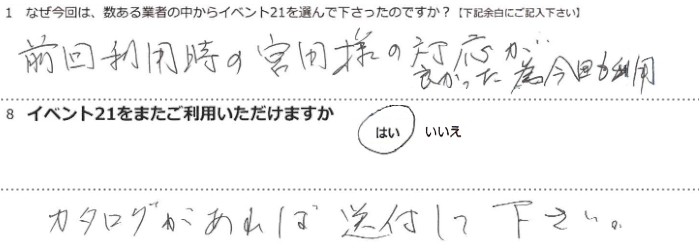 1 なぜ今回は、数ある業者の中からイベント21を選んで下さったのですか？【下記余白にご記入下さい】
前回利用時の宮田様の対応が
良かった為今回も利用
8 イベント21をまたご利用いただけますか
はい いいえ
カタログがあれば送付して下さい。